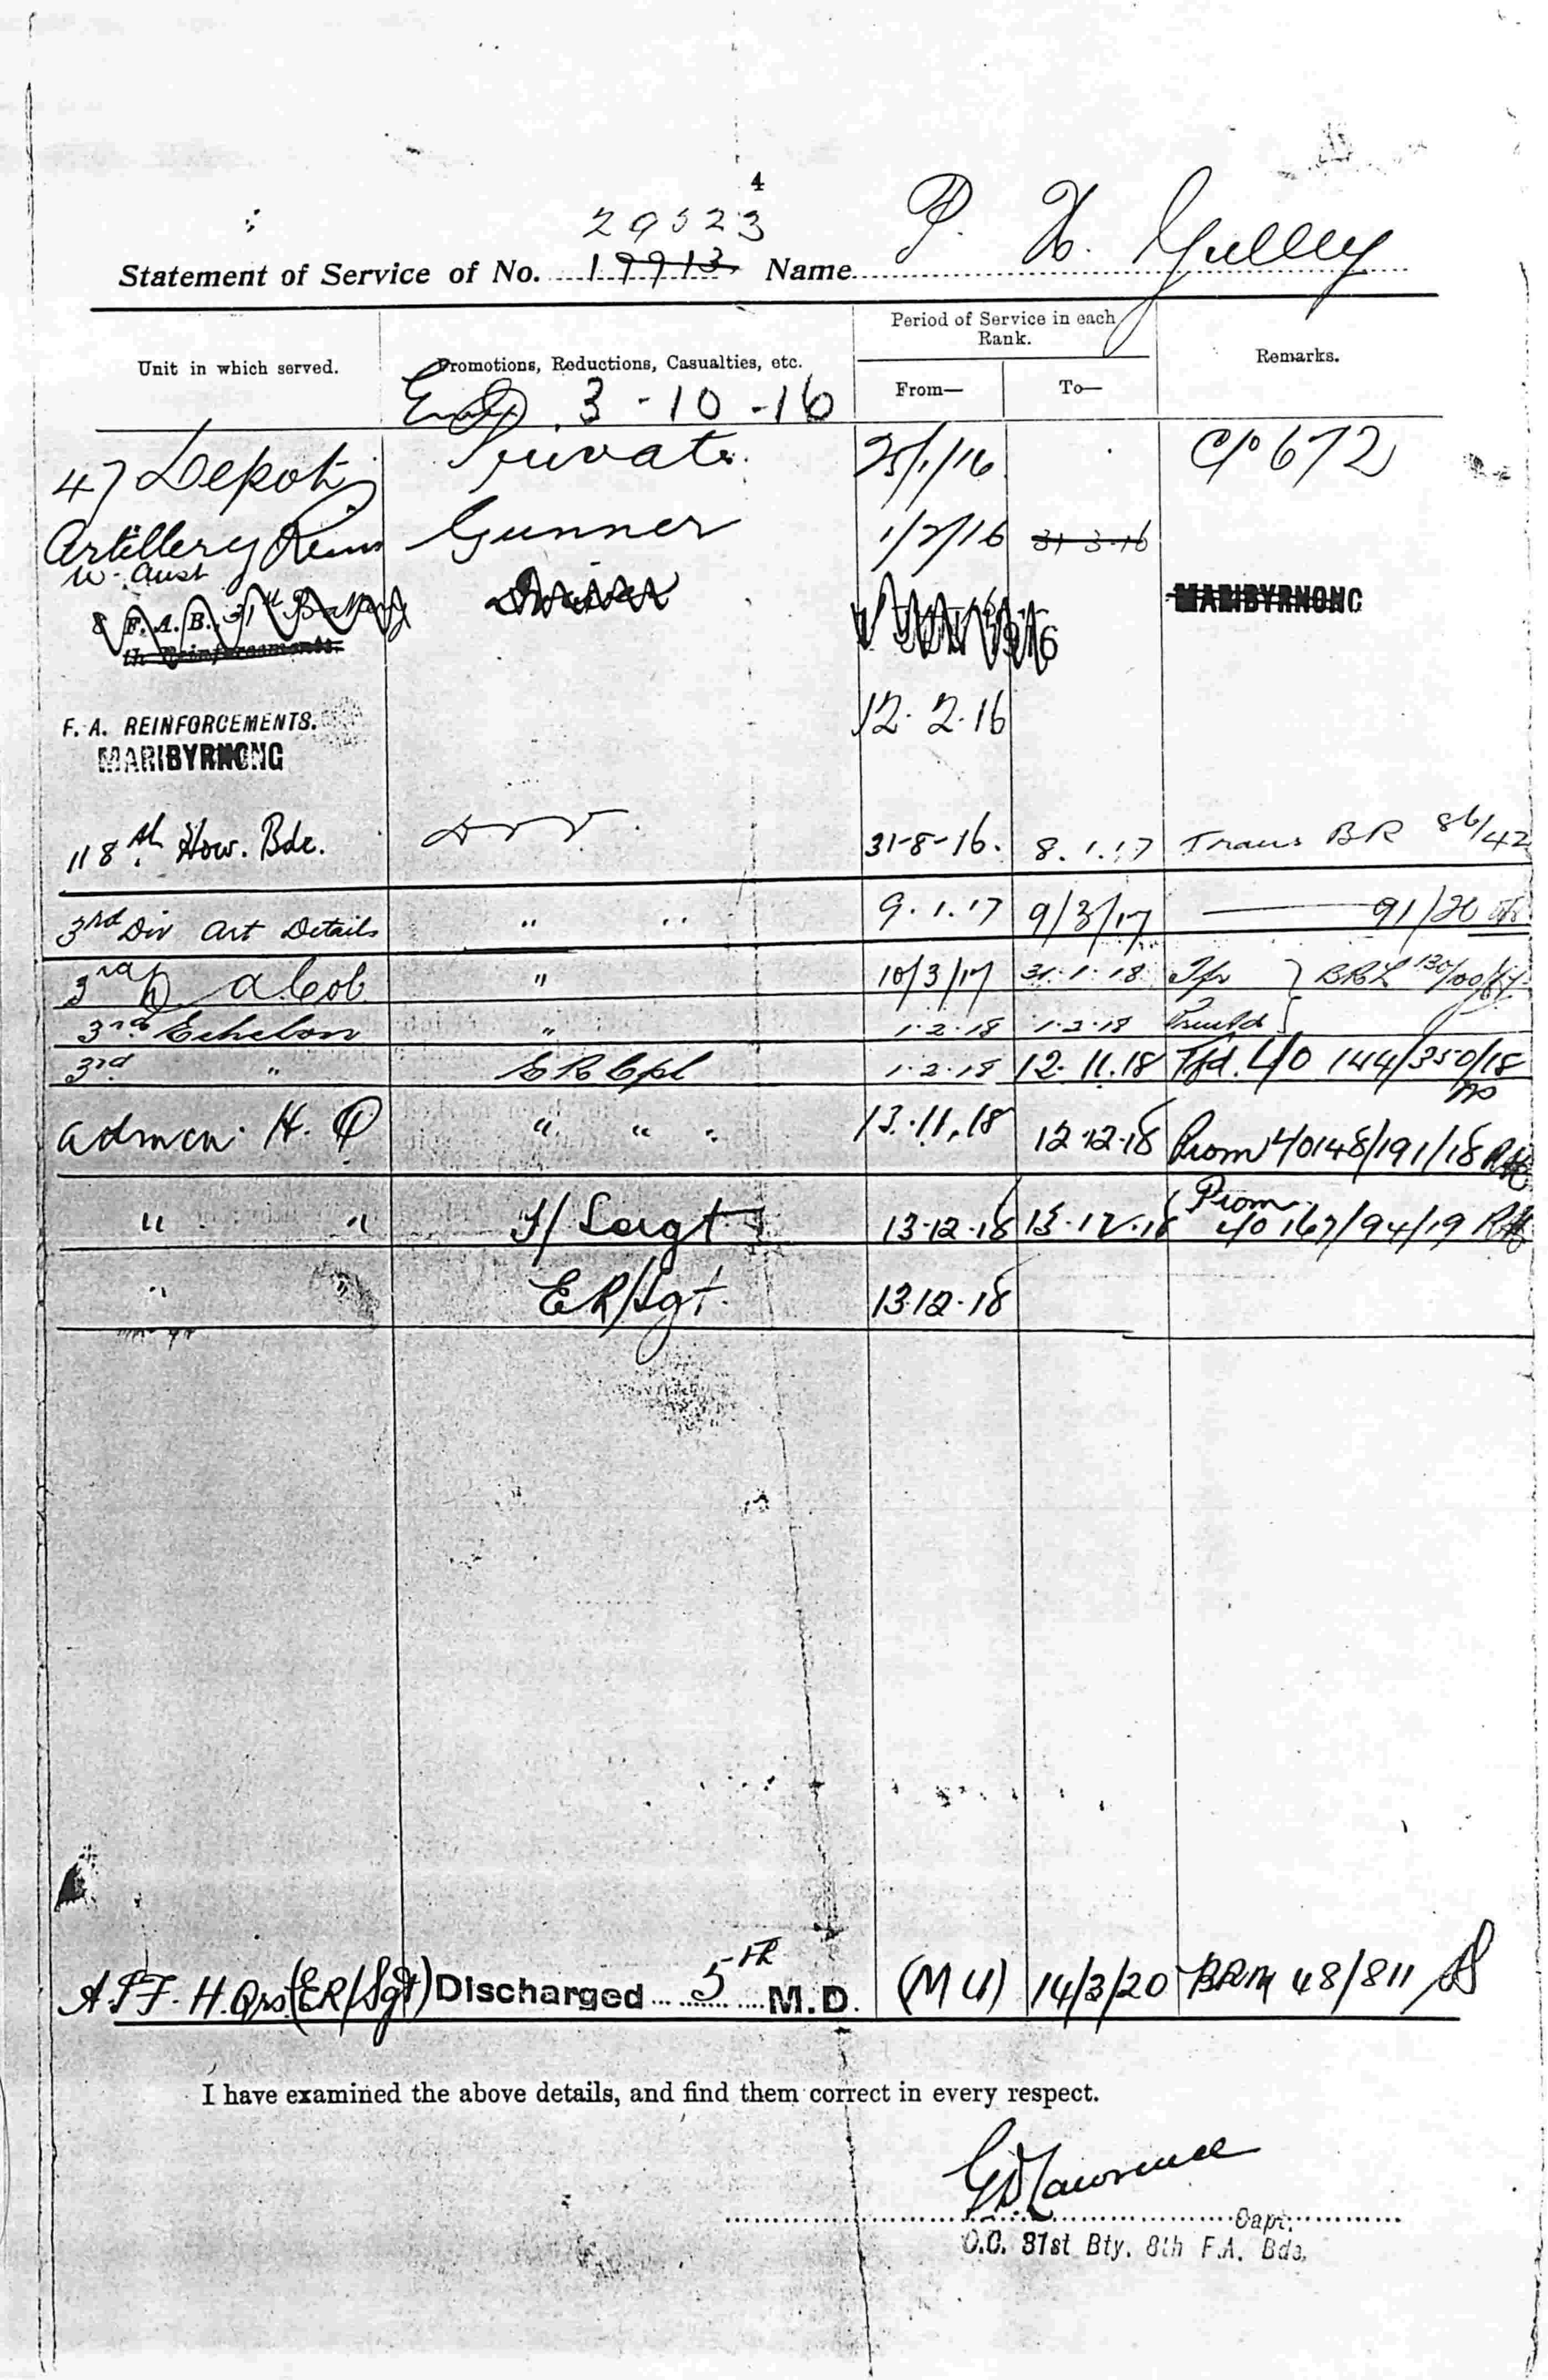 4
29523
Statement of Service of No. 19913 Name P. X. Gulley
Unit in which served.
Promotions, Reductions, Casualties, etc.
Period of Service in each Rank.
From—
To—
Remarks.
3-10-16
47 Depot Private 25/1/16 C/o 672
Artillery Reins Gunner 1/2/16 31-3-16
W. Aust
8 F. A. B. 31st Battery Driver MARIBYRNONG
th Reinforcements.
F. A. REINFORCEMENTS. 12.2.16
MARIBYRNONG
118th How. Bde. Dvr. 31-8-16. 8.1.17 Trans BR 86/42
3rd Div Art Details " " 9.1.17 9/3/17 91/20
3rd D a Col. " 10/3/17 31.1.18 Tfr } BRL
3rd Echelon " 1.2.18 1.2.18
3rd " ER Cpl 1.2.18 12.11.18 Tfd. L/O 144/350/18
Admin. H.Q " " " 13.11.18 12.12.18 Prom 40148/191/18
" " T/Sergt 13-12-18 13-12-18 Prom
40 167/94/19
" " ER/Sgt. 13.12.18
A.I.F. H.Qrs. (ER/Sgt) Discharged 5th M.D. (MU) 14/3/20 BRM 48/811
I have examined the above details, and find them correct in every respect.
G D Lawrence
Capt.
O.C. 31st Bty. 8th F.A. Bde.